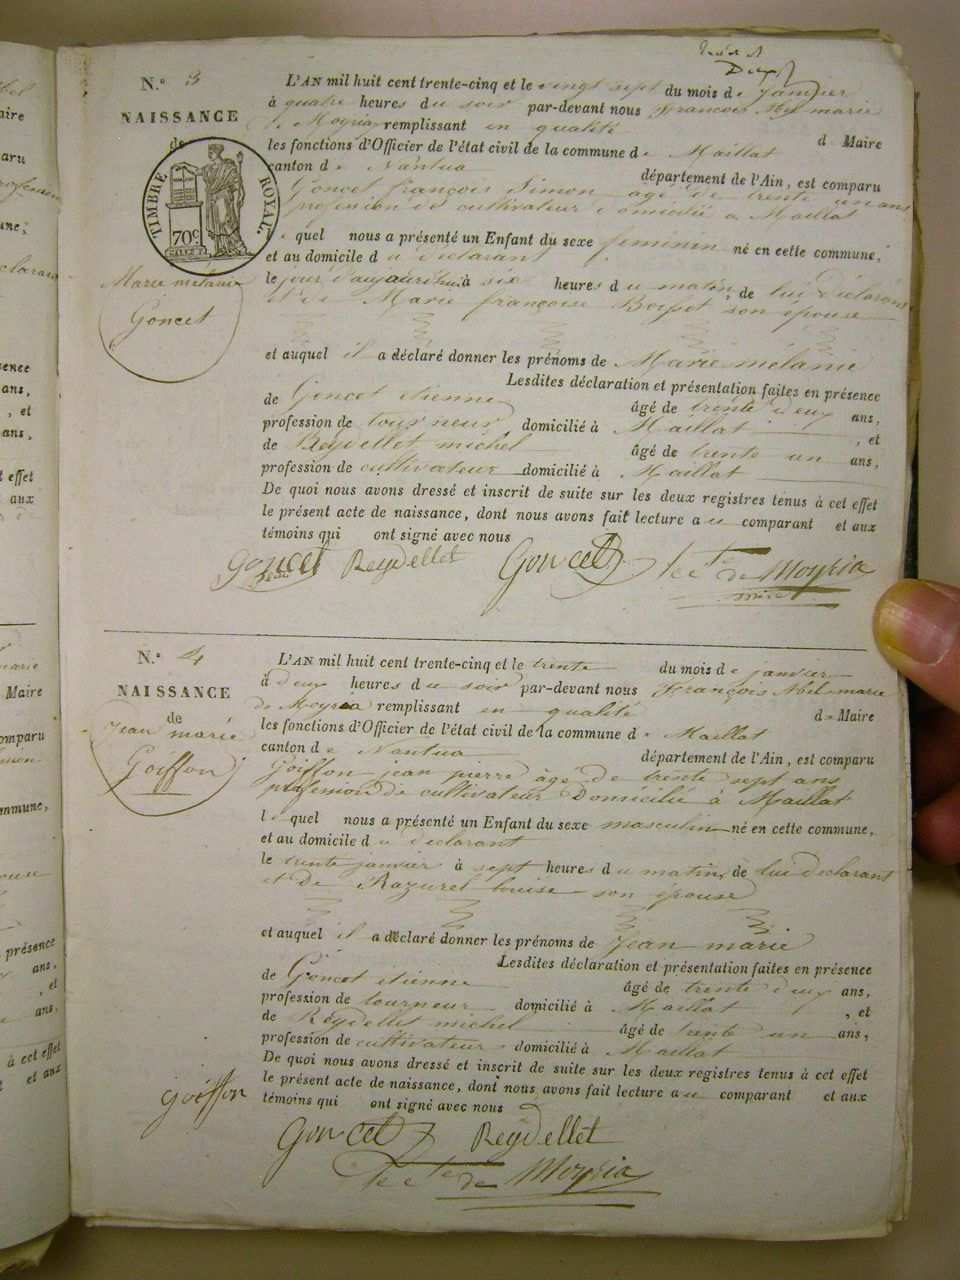 N.º 3
NAISSANCE
de
TIMBRE ROYAL.
70c
Marie mélanie
Goncet
L'AN mil huit cent trente-cinq et le vingt sept du mois de janvier
à quatre heures du soir par-devant nous François Noel marie
de Moyria remplissant en qualité d Maire
les fonctions d'Officier de l'état civil de la commune de Maillat
canton de Nantua département de l'Ain, est comparu
Goncet françois Simon agé de trente un ans
profession de cultivateur domicilié a Maillat
le quel nous a présenté un Enfant du sexe feminin né en cette commune,
et au domicile du déclarant
le jour d'aujourdhui à six heures du matin, de lui déclarant
et de Marie françoise son épouse
et auquel il a déclaré donner les prénoms de Marie mélanie
Lesdites déclaration et présentation faites en présence
de Goncet etienne âgé de trente deux ans,
profession de tourneur, domicilié à Maillat, et
de Reydellet michel âgé de trente un ans,
profession de cultivateur domicilié à Maillat
De quoi nous avons dressé et inscrit de suite sur les deux registres tenus à cet effet
le présent acte de naissance, dont nous avons fait lecture au comparant et aux
témoins qui ont signé avec nous
Goncet Reydellet Goncet de Moyria
N.º 4
NAISSANCE
de
Jean marie
Goiffon
L'AN mil huit cent trente-cinq et le trente du mois de janvier
à deux heures du soir par-devant nous François Noel marie
de Moyria remplissant en qualité d Maire
les fonctions d'Officier de l'état civil de la commune de Maillat
canton de Nantua département de l'Ain, est comparu
Goiffon jean pierre âgé de trente sept ans
profession de cultivateur Domicilié à Maillat
le quel nous a présenté un Enfant du sexe masculin né en cette commune,
et au domicile du déclarant
le trente janvier à sept heures du matin, de lui declarant
et de Razurel louise son épouse
et auquel il a déclaré donner les prénoms de Jean marie
Lesdites déclaration et présentation faites en présence
de Goncet etienne âgé de trente deux ans,
profession de tourneur domicilié à Maillat, et
de Reydellet michel âgé de trente un ans,
profession de cultivateur domicilié à Maillat
De quoi nous avons dressé et inscrit de suite sur les deux registres tenus à cet effet
le présent acte de naissance, dont nous avons fait lecture au comparant et aux
témoins qui ont signé avec nous
goiffon
Goncet Reydellet
de Moyria